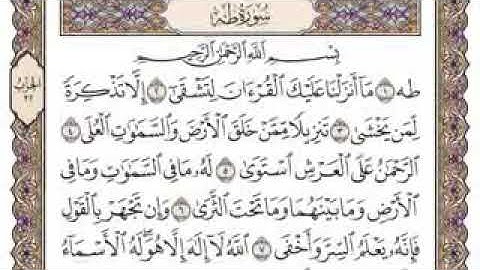 سُورَةُ طه
بِسْمِ ٱللَّهِ ٱلرَّحْمَٰنِ ٱلرَّحِيمِ
طه ١ مَآ أَنزَلْنَا عَلَيْكَ ٱلْقُرْءَانَ لِتَشْقَىٰٓ ٢ إِلَّا تَذْكِرَةً
لِّمَن يَخْشَىٰ ٣ تَنزِيلًا مِّمَّنْ خَلَقَ ٱلْأَرْضَ وَٱلسَّمَٰوَٰتِ ٱلْعُلَى ٤
ٱلرَّحْمَٰنُ عَلَى ٱلْعَرْشِ ٱسْتَوَىٰ ٥ لَهُۥ مَا فِى ٱلسَّمَٰوَٰتِ وَمَا فِى
ٱلْأَرْضِ وَمَا بَيْنَهُمَا وَمَا تَحْتَ ٱلثَّرَىٰ ٦ وَإِن تَجْهَرْ بِٱلْقَوْلِ
فَإِنَّهُۥ يَعْلَمُ ٱلسِّرَّ وَأَخْفَى ٧ ٱللَّهُ لَآ إِلَٰهَ إِلَّا هُوَ لَهُ ٱلْأَسْمَآءُ